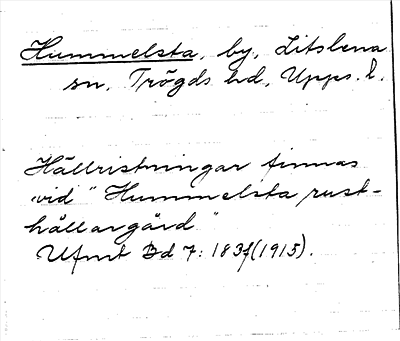 Hummelsta, by, Litslena
sn, Trögds hd, Upps. l.
Hällristningar finnas
vid "Hummelsta rust-
hållargård"
Ufmt Bd 7: 183f (1915).